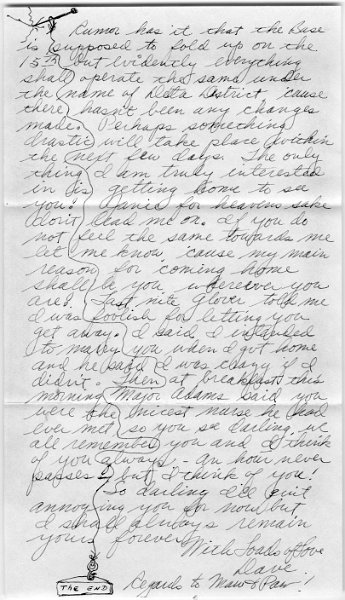 Rumor has it that the Base
is supposed to fold up on the
15th but evidently everything
shall operate the same under
the name of Delta District 'cause
there hasn't been any changes
made. Perhaps something
drastic will take place within
the next few days. The only
thing I am truly interested
in is getting home to see
you! Janie for heavens sake
don't lead me on. If you do
not feel the same towards me
let me know, 'cause my main
reason for coming home
shall be you, wherever you
are! Last nite Glover told me
I was foolish for letting you
get away. I said I intended
to marry you when I got home
and he said I was crazy if I
didn't. Then at breakfast this
morning Major Adams said you
were the nicest nurse he had
ever met so you see darling, we
all remember you and I think
of you always - an hour never
passes but I think of you!
So darling I'll quit
annoying you for now but
I shall always remain
yours forever
With loads of Love
Dave
THE END
Regards to Maw & Paw!